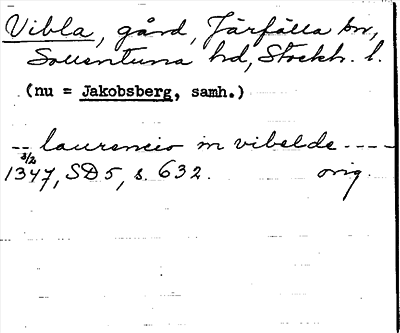 Vibla, gård, Järfälla sn,
Sollentuna hd, Stockh. l.
(nu = Jakobsberg, samh.)
-- laurencio in vibelde ----
3/2
1347, SD 5, s. 632. orig.